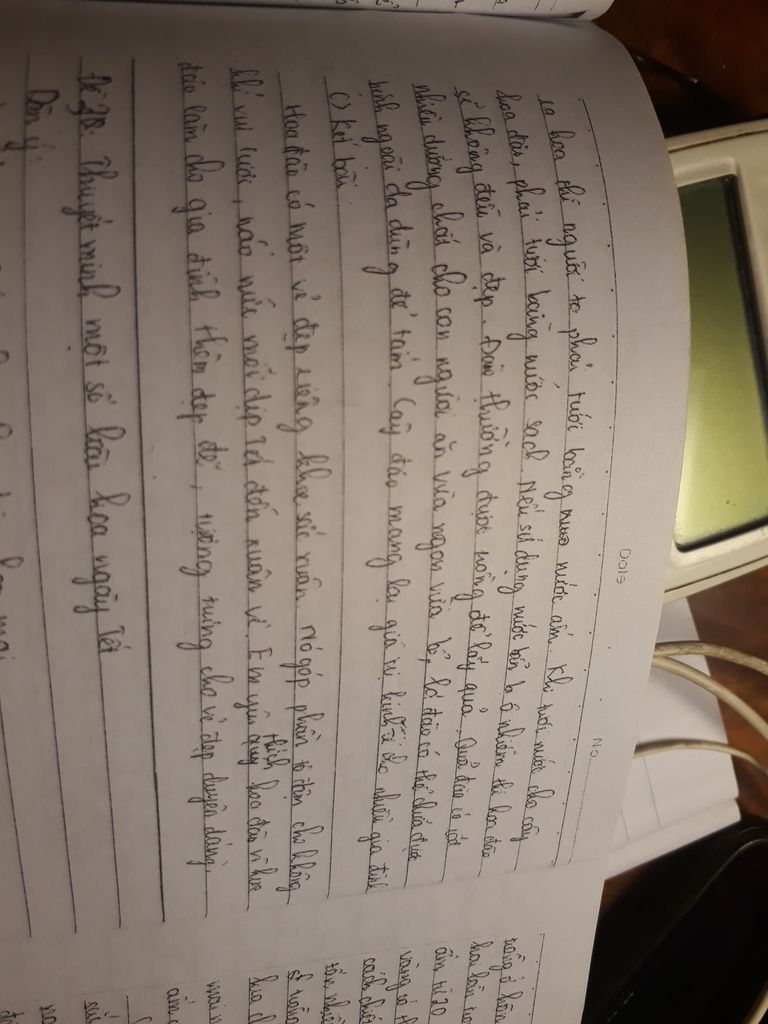 Date No
ra hoa thì người ta phải tưới bằng nước ấm. Khi tưới nước cho cây
hoa đào, phải tưới bằng nước sạch. Nếu sử dụng nước bẩn bị ô nhiễm thì hoa đào
sẽ không đều và đẹp. Đào thường được trồng để lấy quả. Quả đào có rất
nhiều dưỡng chất cho con người ăn vừa ngon vừa bổ, lá đào có thể chữa được
bệnh ngoài da dùng để tắm. Cây đào mang lại giá trị kinh tế cho nhiều gia đình
c) Kết bài.
Hoa đào có một vẻ đẹp riêng khoe sắc xuân. Nó góp phần tô đậm cho không
khí vui tươi, náo nức mỗi dịp Tết đến xuân về. Em yêu thích quý hoa đào vì hoa
đào làm cho gia đình thêm đẹp đẽ, tượng trưng cho vẻ đẹp duyên dáng.
Đề 20: Thuyết minh một số loài hoa ngày Tết
Dàn ý:
hoa mai
trồng ở
hai lần
ấm từ 20
vàng có
cách
tôn nhiều
mai